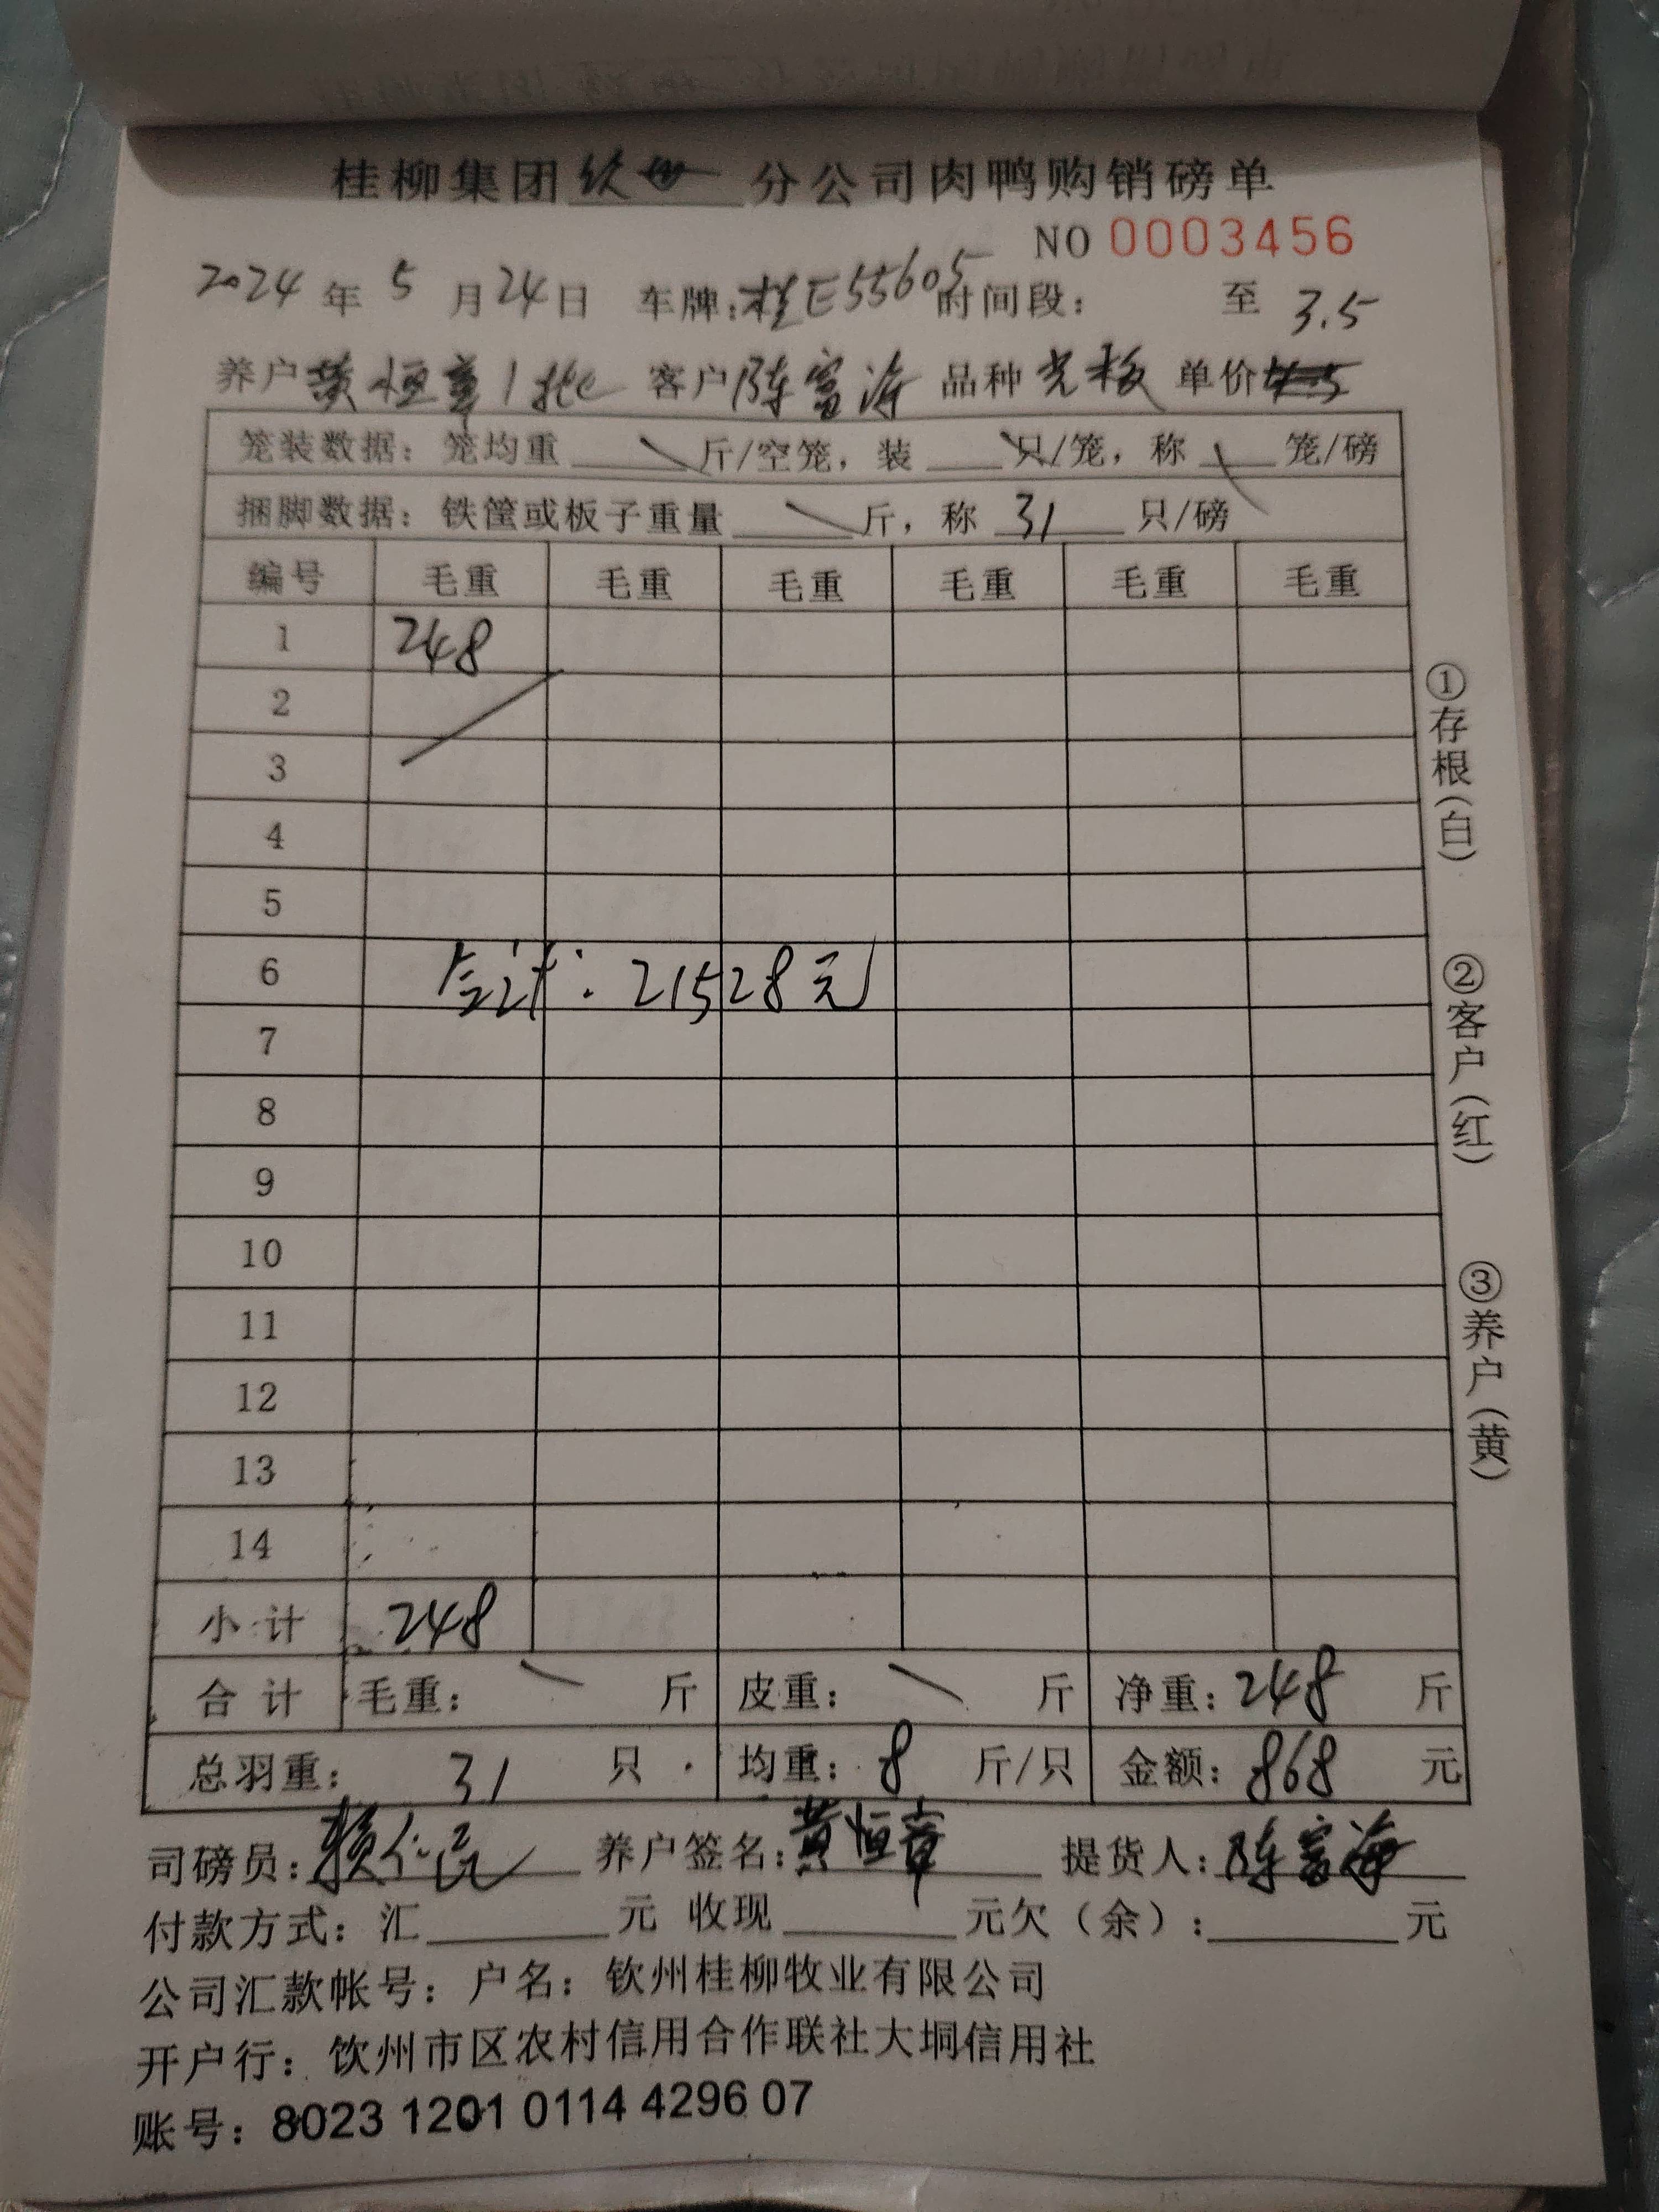 桂柳集团钦州分公司肉鸭购销磅单
NO 0003456
2024年5月24日 车牌:桂E55605 时间段: 至
3.5
养户黄恒章1批 客户陈富海 品种光板 单价
笼装数据：笼均重 斤/空笼，装 只/笼，称 笼/磅
捆脚数据：铁筐或板子重量 斤，称 31 只/磅
编号 毛重 毛重 毛重 毛重 毛重 毛重
1 248
2
3
4
5
6 合计：21528元
7
8
9
10
11
12
13
14
小计 248
合计 毛重： 斤 皮重： 斤 净重：248 斤
总羽重： 31 只 均重：8 斤/只 金额：868 元
司磅员: 养户签名:黄恒章 提货人:陈富海
付款方式：汇 元 收现 元欠（余）: 元
公司汇款帐号：户名：钦州桂柳牧业有限公司
开户行：钦州市区农村信用合作联社大垌信用社
账号：8023 1201 0114 4296 07
①存根(白)
②客户(红)
③养户(黄)